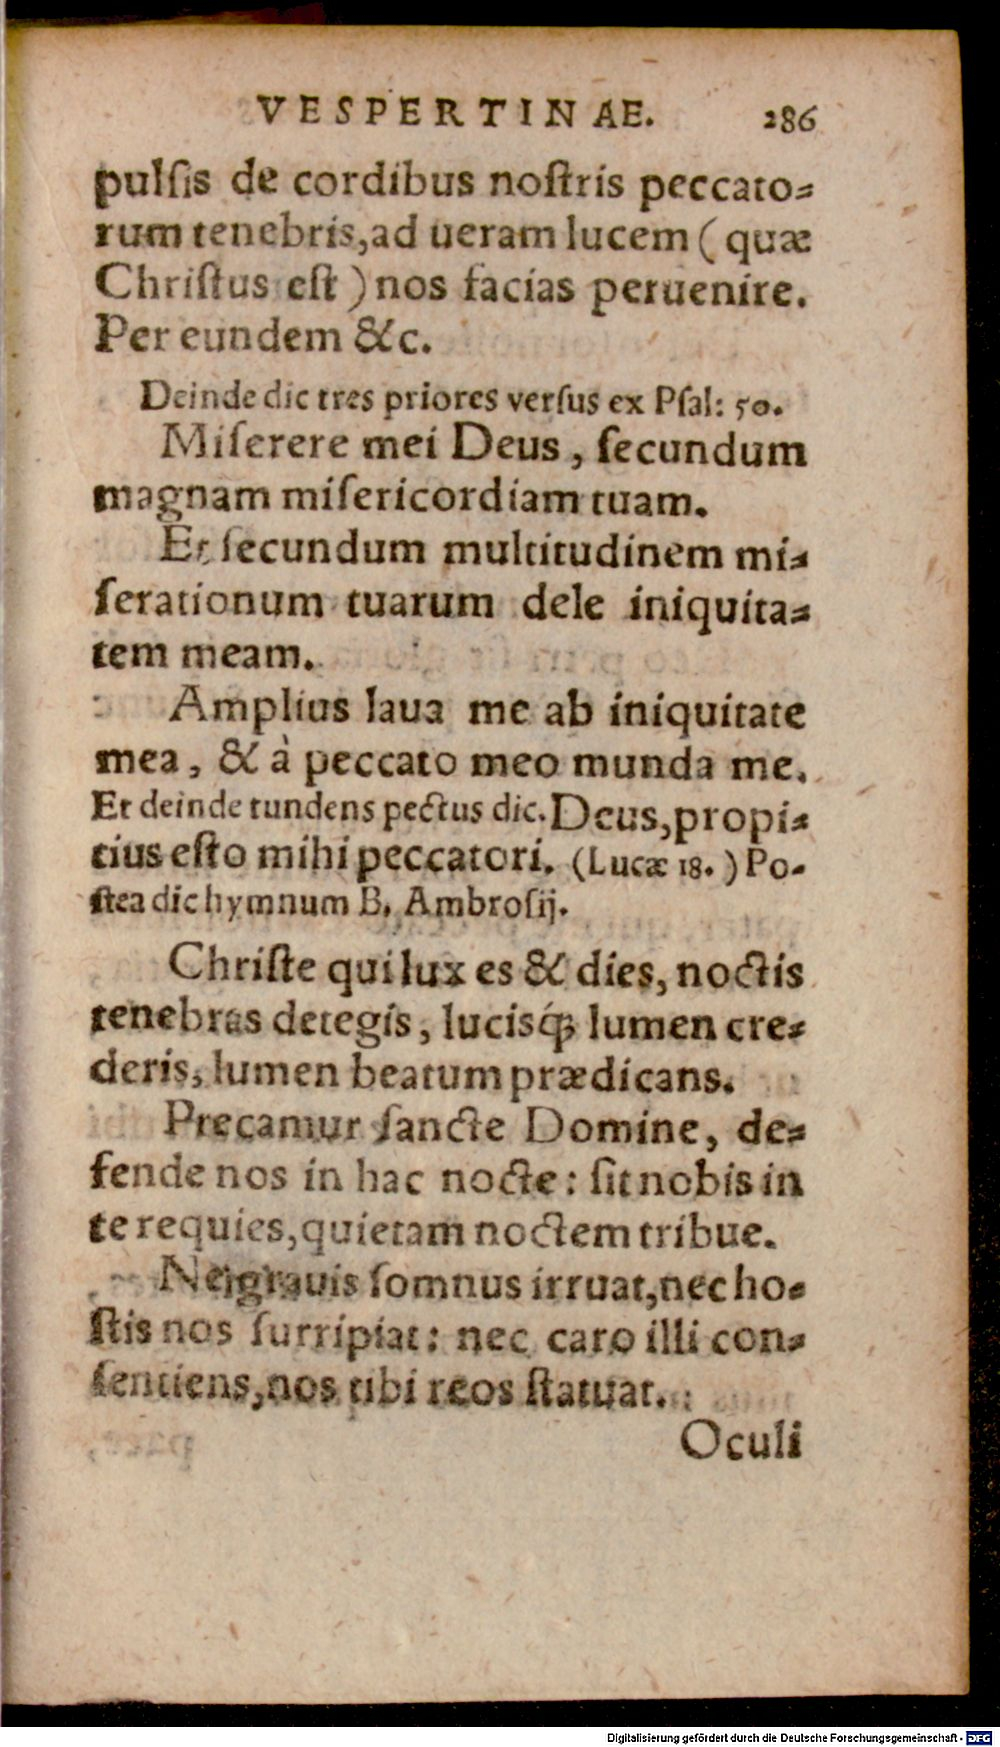 VESPERTINAE. 286
pulſis de cordibus noſtris peccato⸗
rum tenebris,ad ueram lucem ( quæ
Chriſtus eſt ) nos facias peruenire.
Per eundem &c.
Deinde dic tres priores verſus ex Pſal: 50.
Miſerere mei Deus , ſecundum
magnam miſericordiam tuam.
Et ſecundum multitudinem mi⸗
ſerationum tuarum dele iniquita⸗
tem meam.
Amplius laua me ab iniquitate
mea , & à peccato meo munda me.
Et deinde tundens pectus dic. Deus,propi⸗
tius eſto mihi peccatori. (Lucæ 18. ) Po-
ſtea dic hymnum B. Ambroſij.
Chriſte qui lux es & dies, noctis
tenebras detegis , lucisq́ꝫ lumen cre⸗
deris, lumen beatum prædicans.
Precamur ſancte Domine, de⸗
fende nos in hac nocte : ſit nobis in
te requies,quietam noctem tribue.
Ne grauis ſomnus irruat,nec ho⸗
ſtis nos ſurripiat : nec caro illi con⸗
ſentiens,nos tibi reos ſtatuat.
Oculi
Digitalisierung gefördert durch die Deutsche Forschungsgemeinschaft - DFG